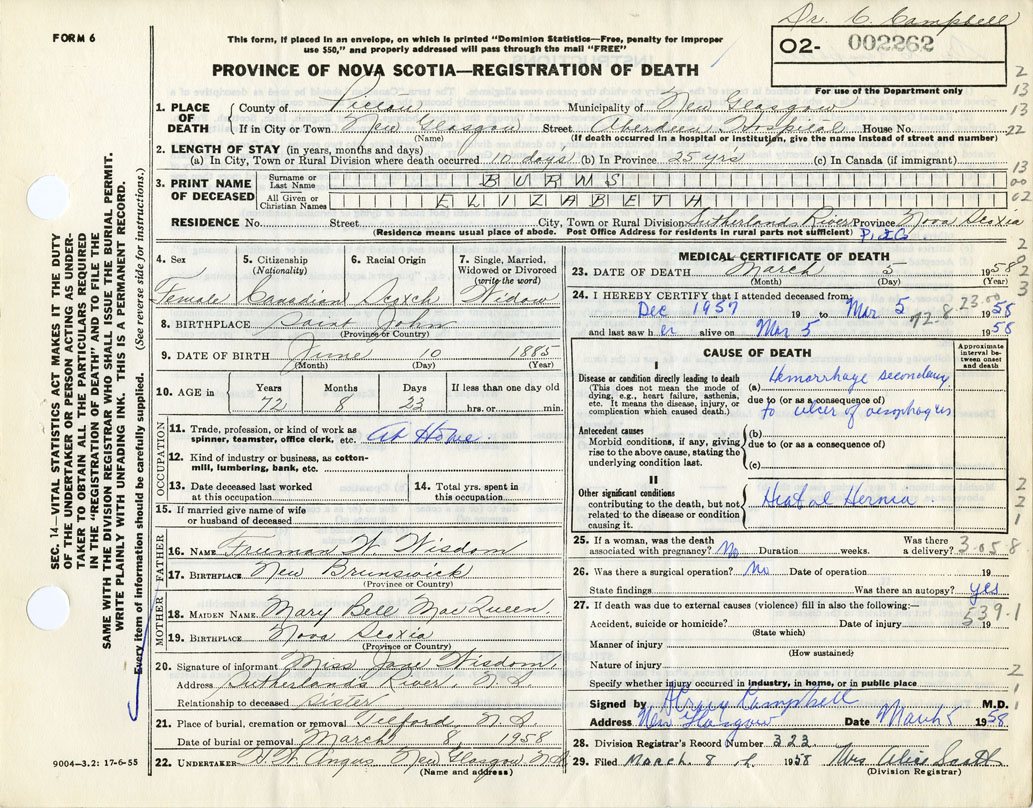 Dr. C. Campbell
FORM 6
This form, if placed in an envelope, on which is printed "Dominion Statistics—Free, penalty for improper
use $50," and properly addressed will pass through the mail "FREE"
O2- 002262
PROVINCE OF NOVA SCOTIA—REGISTRATION OF DEATH
For use of the Department only
1. PLACE OF DEATH County of Pictou Municipality of New Glasgow
If in City or Town New Glasgow Street Aberdeen Hospital House No.
(Name) (If death occurred in a hospital or institution, give the name instead of street and number)
2. LENGTH OF STAY (in years, months and days)
(a) In City, Town or Rural Division where death occurred 10 days (b) In Province 25 yrs (c) In Canada (if immigrant)
3. PRINT NAME OF DECEASED
Surname or Last Name BURNS
All Given or Christian Names ELIZABETH
RESIDENCE No. Street City, Town or Rural Division Sutherlands River Province Nova Scotia
(Residence means usual place of abode. Post Office Address for residents in rural parts not sufficient)
4. Sex Female
5. Citizenship (Nationality) Canadian
6. Racial Origin Scotch
7. Single, Married, Widowed or Divorced (write the word) Widow
8. BIRTHPLACE Saint John
(Province or Country)
9. DATE OF BIRTH June 10 1885
(Month) (Day) (Year)
10. AGE in Years 72 Months 8 Days 23 If less than one day old hrs. or min.
OCCUPATION
11. Trade, profession, or kind of work as spinner, teamster, office clerk, etc. At Home
12. Kind of industry or business, as cotton-mill, lumbering, bank, etc.
13. Date deceased last worked at this occupation
14. Total yrs. spent in this occupation
15. If married give name of wife or husband of deceased
FATHER
16. NAME Freeman W Wisdom
17. BIRTHPLACE New Brunswick
(Province or Country)
MOTHER
18. MAIDEN NAME Mary Bell MacQueen
19. BIRTHPLACE Nova Scotia
(Province or Country)
20. Signature of informant Miss Jane Wisdom
Address Sutherland's River, N.S.
Relationship to deceased Sister
21. Place of burial, cremation or removal Telford N.S.
Date of burial or removal March 8 1958
22. UNDERTAKER H W Angus New Glasgow N.S.
(Name and address)
MEDICAL CERTIFICATE OF DEATH
23. DATE OF DEATH March 5 1958
(Month) (Day) (Year)
24. I HEREBY CERTIFY that I attended deceased from:
Dec 1957 19 to Mar 5 1958
72.8.23.00
and last saw her alive on Mar 5 1958
CAUSE OF DEATH
Approximate interval between onset and death
I
Disease or condition directly leading to death
(This does not mean the mode of dying, e.g., heart failure, asthenia, etc. It means the disease, injury, or complication which caused death.)
(a) Hemorrhage secondary
due to (or as a consequence of)
to ulcer of oesophagus
Antecedent causes
Morbid conditions, if any, giving rise to the above cause, stating the underlying condition last.
(b)
due to (or as a consequence of)
(c)
II
Other significant conditions
contributing to the death, but not related to the disease or condition causing it.
Hiatal Hernia
25. If a woman, was the death associated with pregnancy? No Duration weeks. Was there a delivery?
3.05.8
26. Was there a surgical operation? No Date of operation 19
State findings Was there an autopsy? yes
27. If death was due to external causes (violence) fill in also the following:—
539.1
Accident, suicide or homicide? Date of injury 19
(State which)
Manner of injury
(How sustained)
Nature of injury
Specify whether injury occurred in industry, in home, or in public place
Signed by Campbell M.D.
Address New Glasgow Date March 5 1958
28. Division Registrar's Record Number 323
29. Filed March 8 1958 Mrs Alice Scott
(Division Registrar)
9004-3.2: 17-6-55
SEC. 14—VITAL STATISTICS ACT MAKES IT THE DUTY
OF THE UNDERTAKER OR PERSON ACTING AS UNDER-
TAKER TO OBTAIN ALL THE PARTICULARS REQUIRED
IN THE "REGISTRATION OF DEATH" AND TO FILE THE
SAME WITH THE DIVISION REGISTRAR WHO SHALL ISSUE THE BURIAL PERMIT.
WRITE PLAINLY WITH UNFADING INK. THIS IS A PERMANENT RECORD.
Every item of information should be carefully supplied. (See reverse side for instructions.)